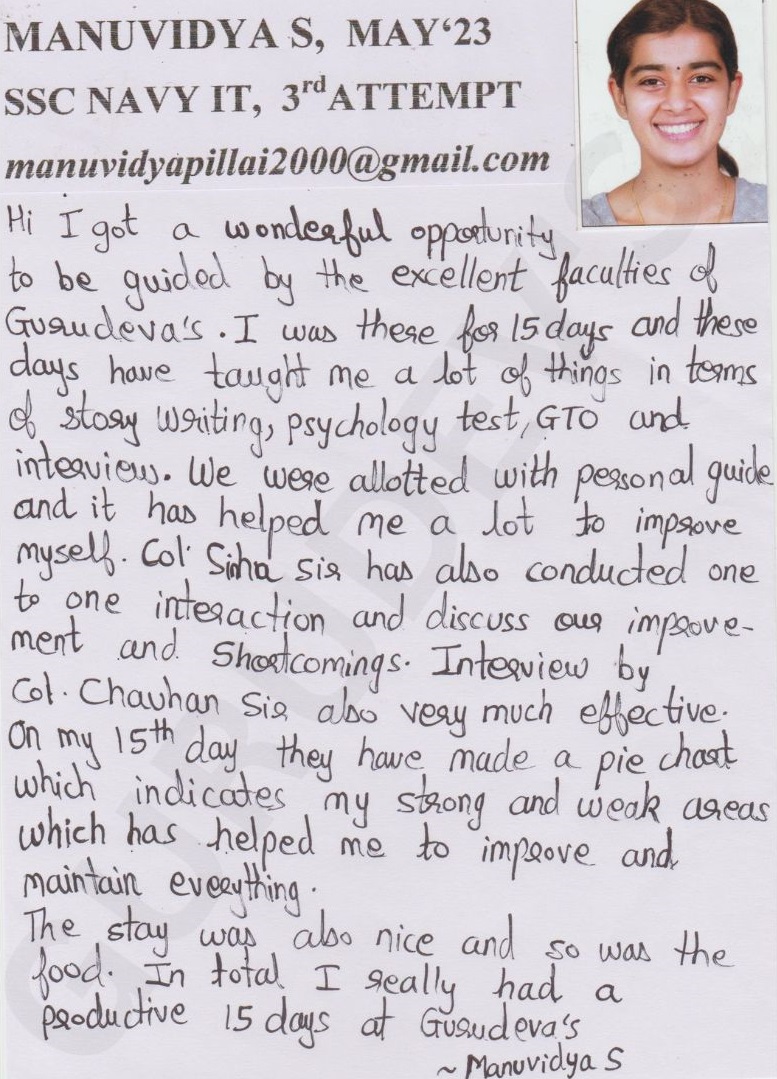 MANUVIDYA S, MAY‘23
SSC NAVY IT, 3rd ATTEMPT
manuvidyapillai2000@gmail.com
Hi I got a wonderful opportunity
to be guided by the excellent faculties of
Gurudeva's. I was there for 15 days and these
days have taught me a lot of things in terms
of story writing, psychology test, GTO and
interview. We were allotted with personal guide
and it has helped me a lot to improve
myself. Col. Sinha sir has also conducted one
to one interaction and discuss our improve-
ment and Shortcomings. Interview by
Col. Chauhan Sir also very much effective.
On my 15th day they have made a pie chart
which indicates my strong and weak areas
which has helped me to improve and
maintain everything.
The stay was also nice and so was the
food. In total I really had a
productive 15 days at Gurudeva's
~ Manuvidya S
GURUDEVA'S